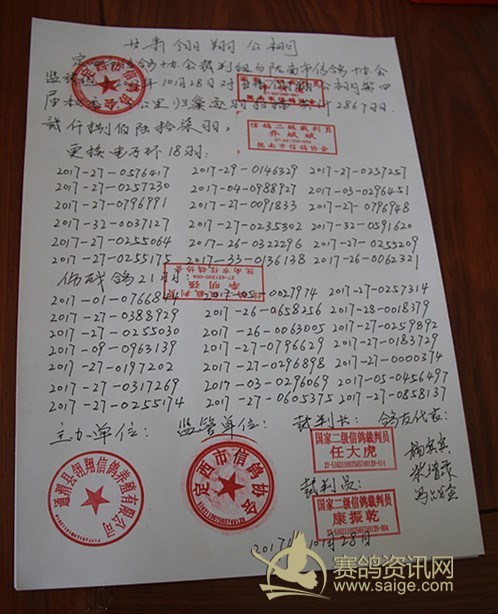 甘肃翎翔公棚
定西市信鸽协会裁判组与陇南市信鸽协会
年10月28日对甘肃翎翔公棚第四
2867羽.
贰仟捌佰陆拾柒羽。
更换电子环18羽:
2017-27-0576417 2017-29-0146329 2017-27-0257257
2017-27-0257230 2017-04-0988927 2017-03-0296451
2017-27-0796991 2017-27-0091833 2017-27-0796948
2017-32-0037127 2017-27-0235302 2017-32-0591620
2017-27-0255064 2017-26-0322296 2017-27-0253209
2017-27-0255175 2017-33-0136138 2017-26-0062321
伤残鸽21羽:
2017-01-0766874 0027974 2017-27-0257314
2017-27-0388929 2017-26-0658256 2017-28-0018379
2017-27-0255030 2017-26-0063005 2017-27-0259892
2017-09-0963139 2017-27-0796629 2017-27-0183729
2017-27-0197202 2017-27-0296898 2017-27-0000374
2017-27-0317269 2017-03-0296069 2017-05-0456497
2017-27-0255174 2017-26-0605375 2017-27-0858137
主办单位: 监管单位: 裁判长: 鸽友代表:
国家二级信鸽裁判员
任大虎
裁判员:
国家二级信鸽裁判员
康振乾
2017年10月28日
定西市信鸽协会
通渭县翎翔信鸽养殖有限公司
信鸽二级裁判员
乔斌斌
陇南市信鸽协会
李明强
陇南市信鸽协会
赛鸽资讯网
www.saige.com